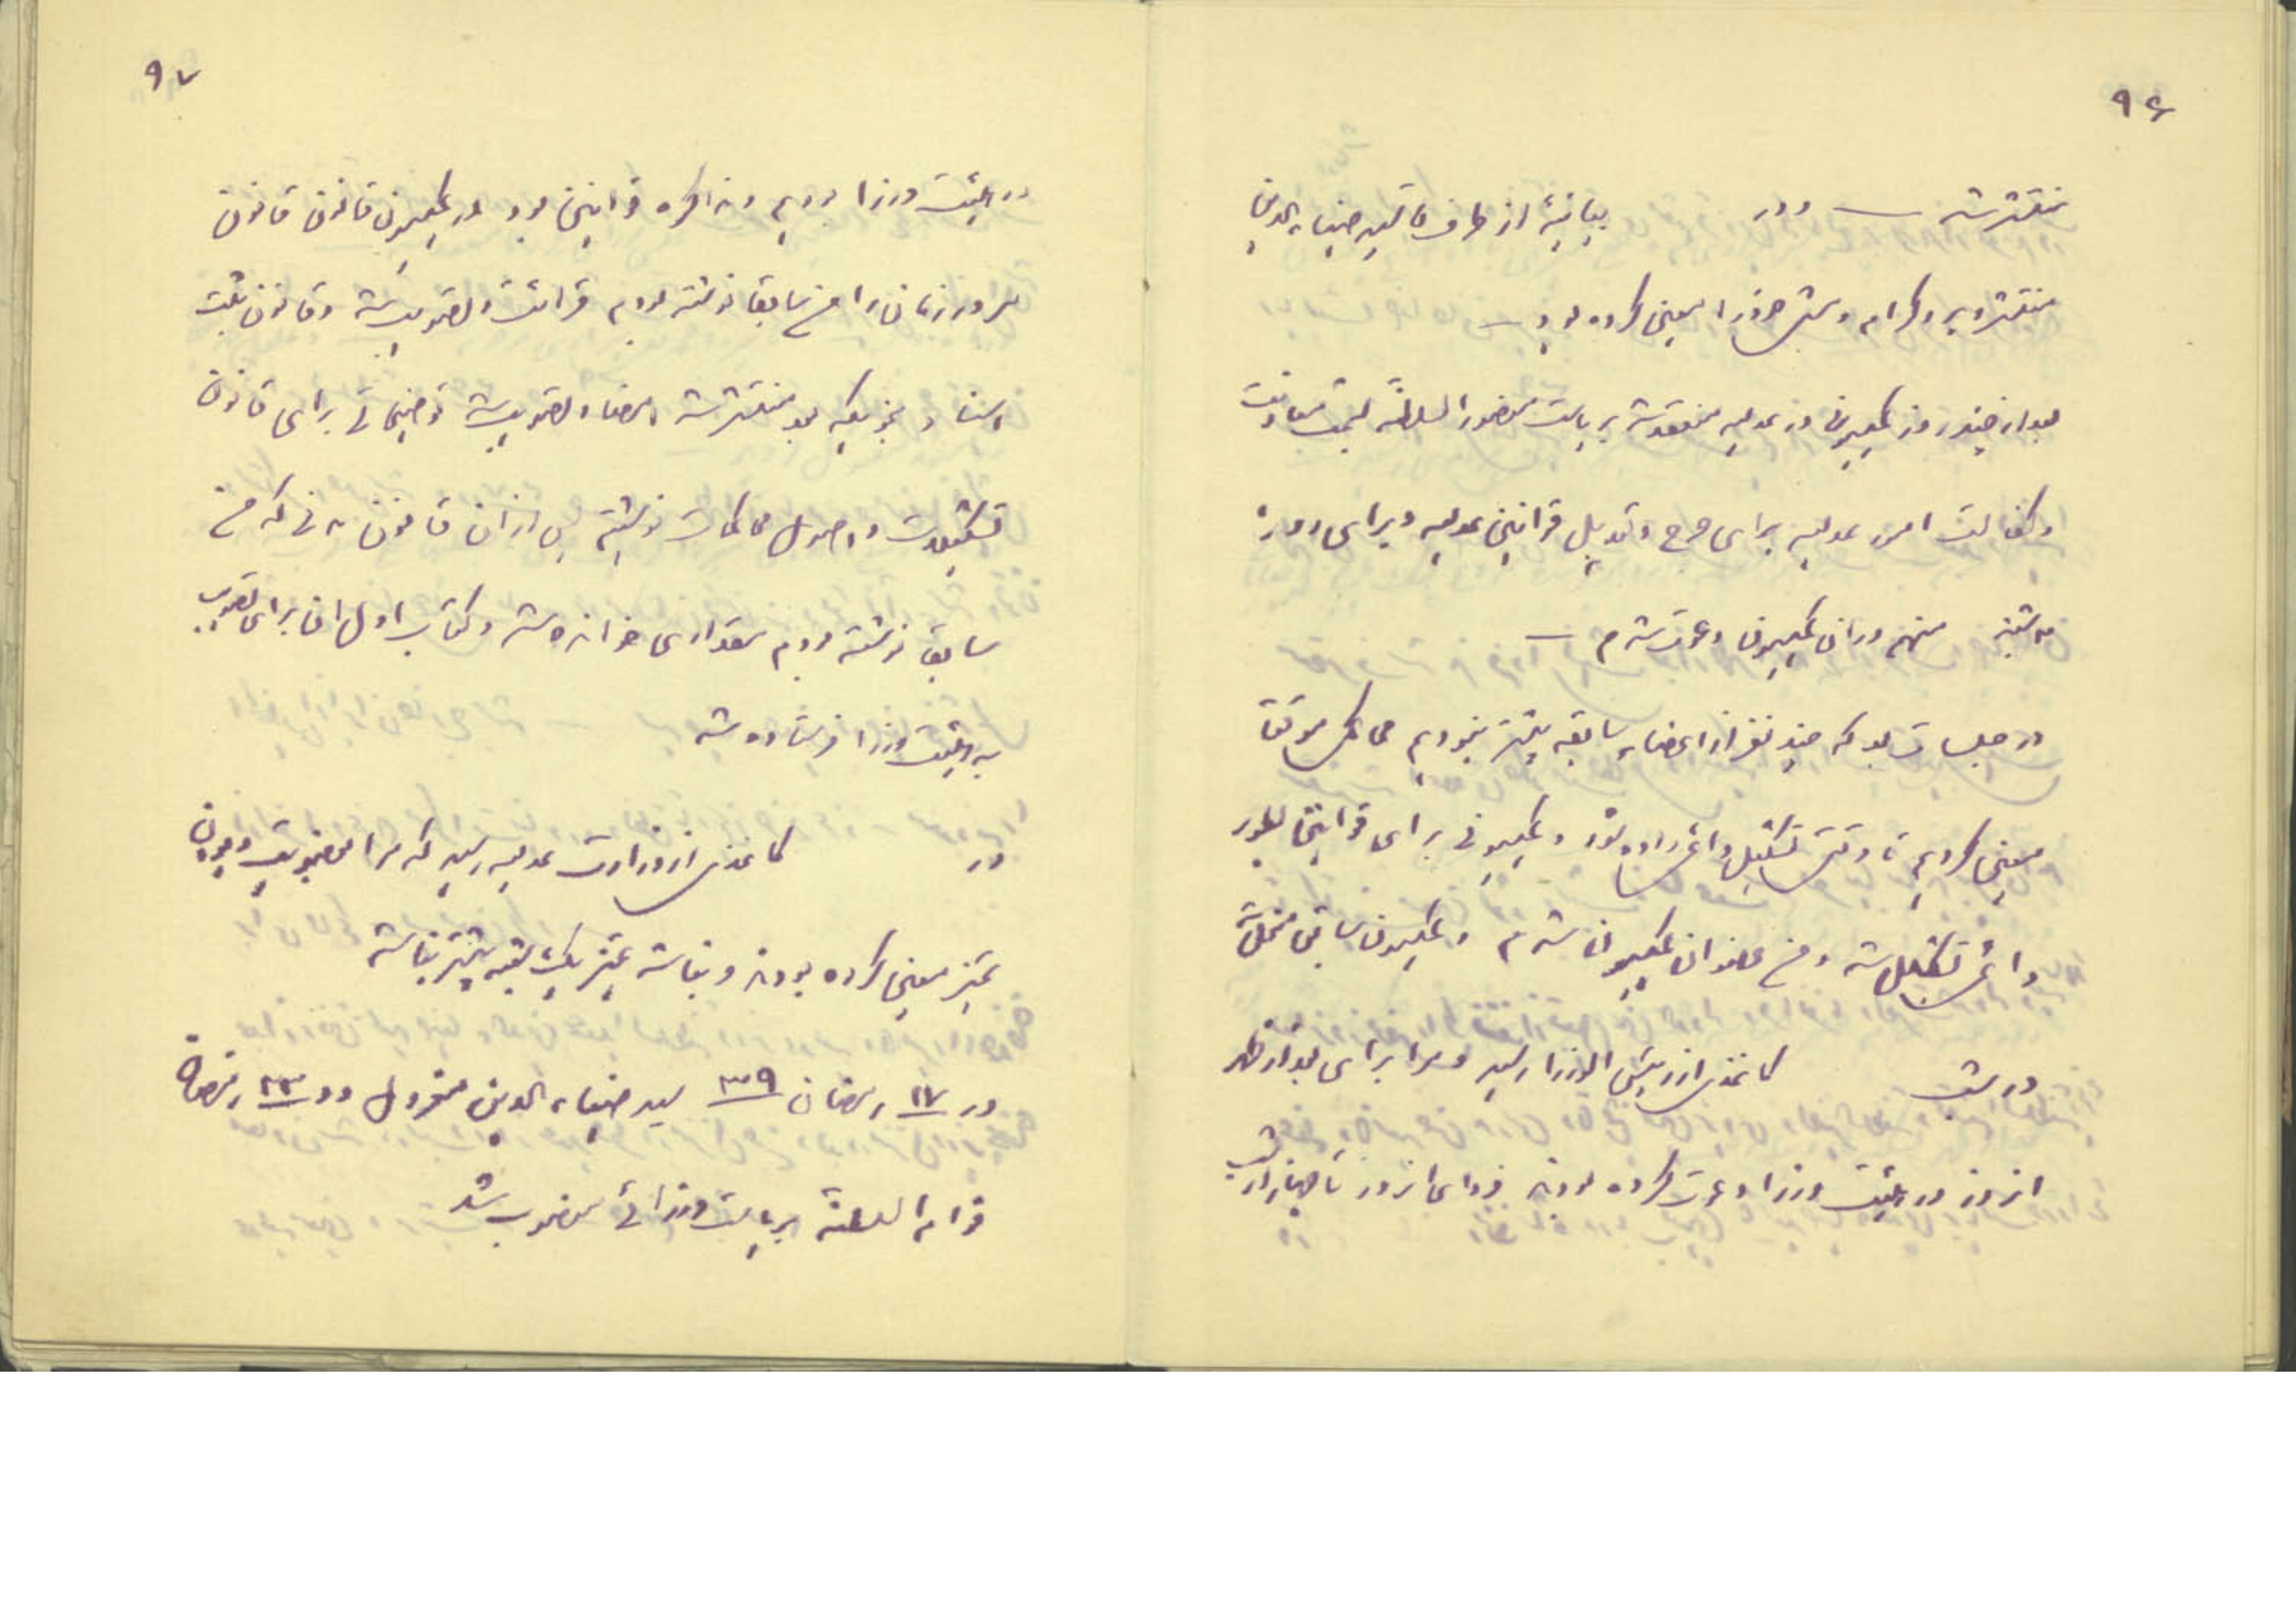 ۹۶
منتشر شد — و در بیانیهٔ از طرف آقا سید ضیاءالدین
منتشر و پروگرام و مشی خود را معین کرده بود —
بعد از چند روز کمیسیونی در عدلیه منعقد شد بریاست منصورالسلطنه که سمت معاونت
و کفالت امور عدلیه برای جرح و تعدیل قوانین عدلیه و برای روز
سه‌شنبه منهم در آن کمیسیون دعوت شدم —
در جلسات بعد که چند نفر از اعضاء سابقه بیشتر نبودیم محاکمی موقتاً
معین کردیم تا وقتی تشکیل دائمی داده شود و کمیسیونی برای قوانین بطور
دائمی تشکیل شد و من عضو آن کمیسیون شدم و کمیسیون سابق منحل شد
در شب کاغذی از رئیس الوزرا رسید و مرا برای بعد از ظهر
آنروز در هیئت وزرا دعوت کرده بودند فردای آنروز تا چهار از شب
۹۷
در هیئت وزرا بودیم و مذاکره قوانین بود در کمیسیون قانون قانون
مرور زمان را من سابقاً نوشته بودم قرائت و تصویب شد و قانون ثبت
اسناد بنحویکه بعد منتشر شد امضا و تصویب شد توضیحاتی برای قانون
تشکیلات و اصول محاکمات نوشتیم پس از آن قانون مدنی که من
سابق نوشته بودم مقداری خوانده شد و کتاب اول آن برای تصویب
به هیئت وزرا فرستاده شد
در کاغذی از وزارت عدلیه رسید که مرا بعضویت دیوان
تمیز معین کرده بودند و بنا شد تمیز یک شعبه بیشتر نباشد
در ۱۷ رمضان ۳۹ سید ضیاءالدین معزول و در ۲۳ رمضان
قوام السلطنه بریاست وزرائی منصوب شد